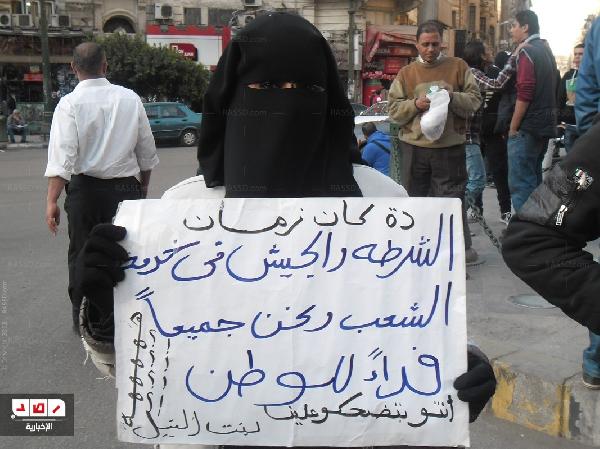 دة كان زمان
الشرطه والجيش فى خدمة
الشعب ونحن جميعاً
فداءً للوطن
انتو بتضحكو علينا
بنت النيل
رصد
الإخبارية
RASSD.com